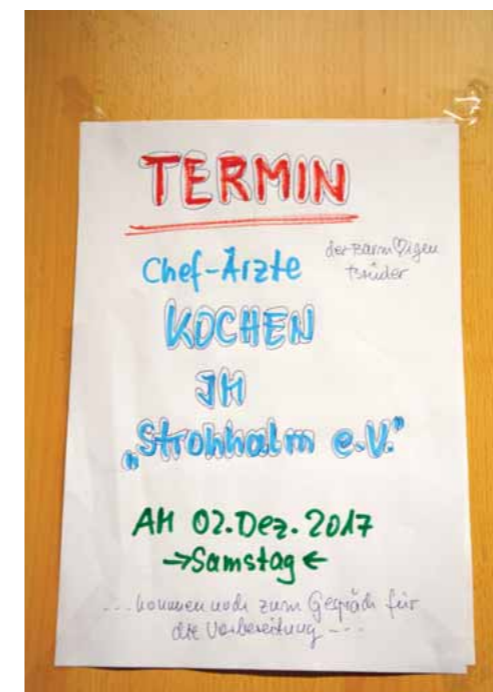 TERMIN
Chef-Ärzte
der Barm♡igen
Brüder
KOCHEN
IM
„Strohhalm e.V."
AM 02. Dez. 2017
→Samstag←
... kommen noch zum Gespräch für
die Vorbereitung ...